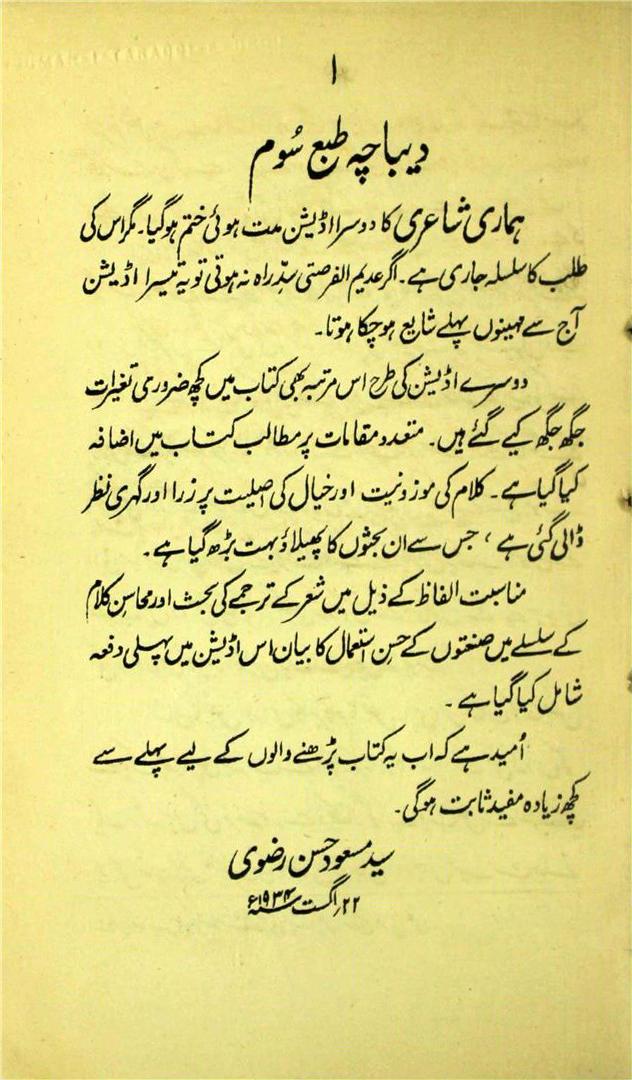 ۱
دیباچہ طبع سُوم
ہماری شاعری کا دوسرا اڈیشن مدت ہوئی ختم ہوگیا۔ مگر اس کی
طلب کا سلسلہ جاری ہے۔ اگر عدیم الفرصتی سدِّ راہ نہ ہوتی تو یہ تیسرا اڈیشن
آج سے مہینوں پہلے شایع ہوچکا ہوتا۔
دوسرے اڈیشن کی طرح اس مرتبہ بھی کتاب میں کچھ ضروری تغیرات
جگھ جگھ کیے گئے ہیں۔ متعدد مقامات پر مطالب کتاب میں اضافہ
کیا گیا ہے۔ کلام کی موزونیت اور خیال کی اصلیت پر زرا اور گہری نظر
ڈالی گئی ہے، جس سے ان بحثوں کا پھیلاؤ بہت بڑھ گیا ہے۔
مناسبت الفاظ کے ذیل میں شعر کے ترجمے کی بحث اور محاسنِ کلام
کے سلسلے میں صنعتوں کے حسنِ استعمال کا بیان اس اڈیشن میں پہلی دفعہ
شامل کیا گیا ہے۔
اُمید ہے کہ اب یہ کتاب پڑھنے والوں کے لیے پہلے سے
کچھ زیادہ مفید ثابت ہوگی۔
سید مسعود حسن رضوی
۲۲؍ اگست سنہ ۱۹۳۴ء